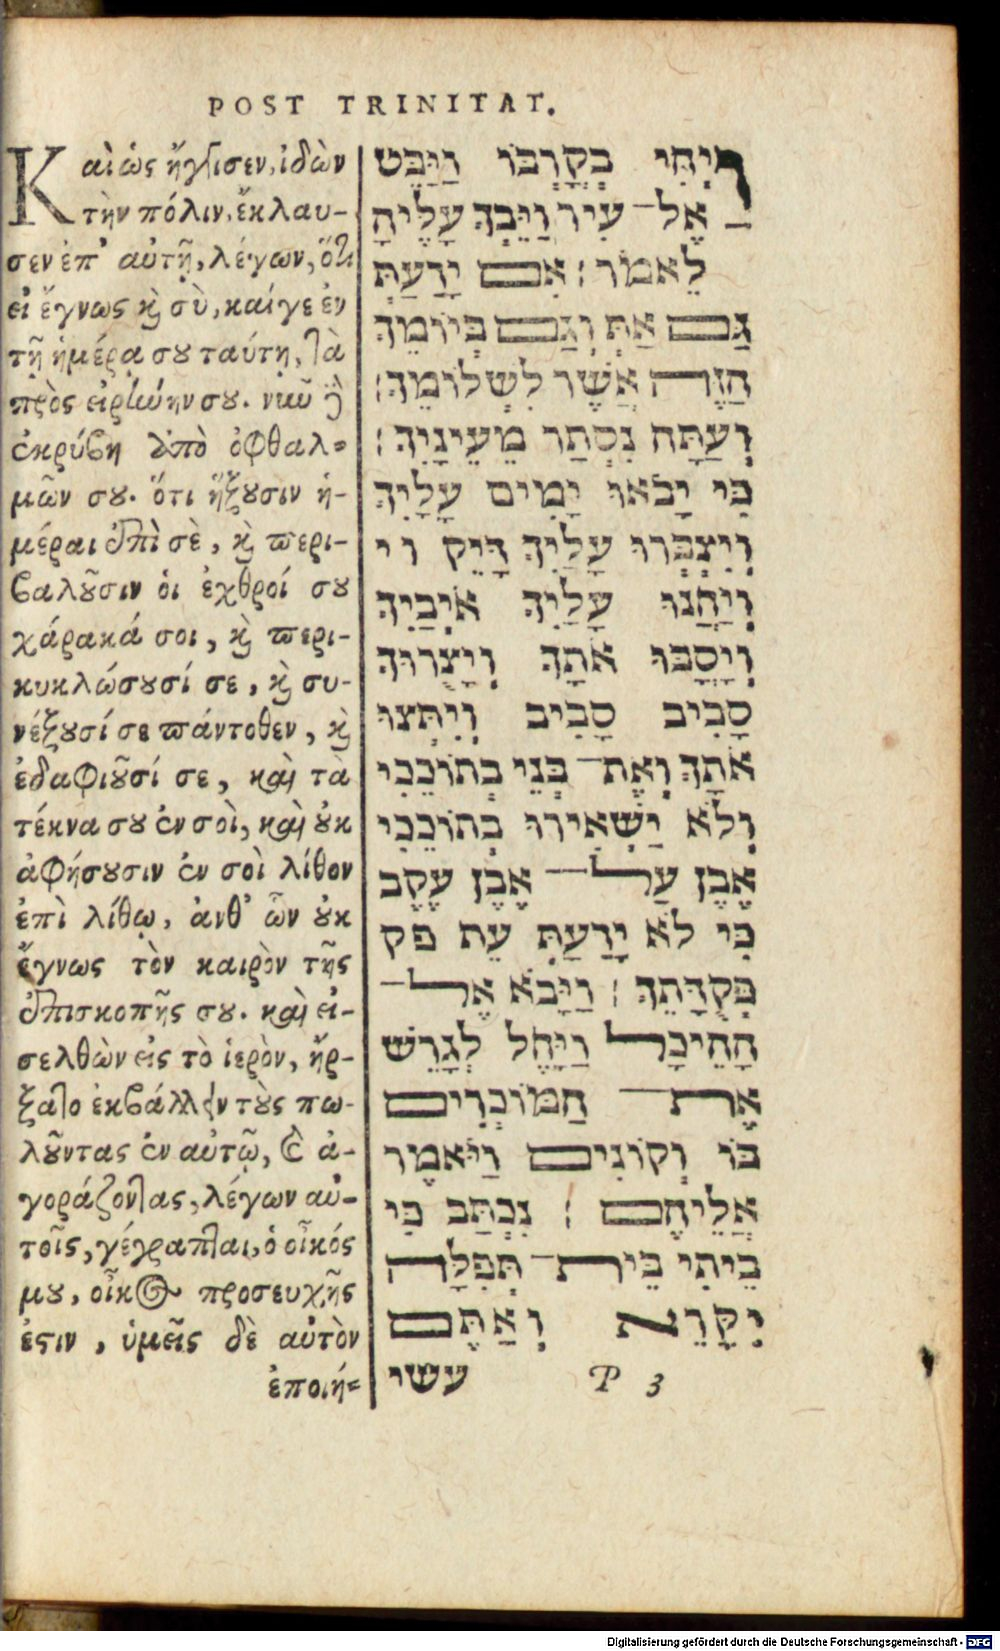 POST TRINITAT.
Καὶ ὡς ἤγγισεν, ἰδὼν
τὴν πόλιν, ἔκλαυ-
σεν ἐπ' αὐτῇ, λέγων, ὅτι
εἰ ἔγνως καὶ σὺ, καίγε ἐν
τῇ ἡμέρᾳ σου ταύτῃ, τὰ
πρὸς εἰρήνην σου. νῦν δὲ
ἐκρύβη ἀπὸ ὀφθαλ=
μῶν σου. ὅτι ἥξουσιν ἡ-
μέραι ἐπὶ σὲ, καὶ περι-
βαλοῦσιν οἱ ἐχθροί σου
χάρακά σοι, καὶ περι-
κυκλώσουσί σε, καὶ συ-
νέξουσί σε πάντοθεν, καὶ
ἐδαφιοῦσί σε, καὶ τὰ
τέκνα σου ἐν σοὶ, καὶ οὐκ
ἀφήσουσιν ἐν σοὶ λίθον
ἐπὶ λίθῳ, ἀνθ' ὧν οὐκ
ἔγνως τὸν καιρὸν τῆς
ἐπισκοπῆς σου. καὶ εἰ-
σελθὼν εἰς τὸ ἱερὸν, ἤρ-
ξατο ἐκβάλλειν τοὺς πω-
λοῦντας ἐν αὐτῷ, καὶ ἀ-
γοράζοντας, λέγων αὐ-
τοῖς, γέγραπται, ὁ οἶκός
μου, οἶκος προσευχῆς
ἐστιν, ὑμεῖς δὲ αὐτὸν
ἐποιή=
וַיְהִי בְקָרְבּוֹ וַיַּבֵּט
אֶל־ עִיר וַיֵּבְךְּ עָלֶיהָ
לֵאמֹר׃ אִם יָדַעַתְּ
גַּם אַתְּ וְגַם בְּיוֹמֵךְ
הַזֶּה אֲשֶׁר לִשְׁלוֹמֵךְ׃
וְעַתָּה נִסְתַר מֵעֵינָיִךְ׃
כִּי יָבֹאוּ יָמִים עָלָיִךְ
וְיִצְבְּרוּ עָלַיִךְ דָּיֵק וי
וְיַחֲנוּ עָלַיִךְ אֹיְבַיִךְ
וְיָסֹבּוּ אֹתָךְ וְיָצֻרוּךְ
סָבִיב סָבִיב וְיִתְּצוּ
אֹתָךְ וְאֶת־ בְּנֵי בְתוֹכֵכִי
וְלֹא יַשְׁאִירוּ בְתוֹכֵכִי
אֶבֶן עַל־ אֶבֶן עֵקֶב
כִּי לֹא יָדַעַתְּ עֵת פק
פְּקֻדָּתֵךְ׃ וַיָּבֹא אֶל־
הָהֵיכָל וַיָּחֶל לְגָרֵשׁ
אֶת־ הַמּוֹכְרִים
בּוֹ וְקוֹנִים וַיֹּאמֶר
אֲלֵיהֶם׃ נִכְתַּב כִּי
בֵיתִי בֵּית־ תְּפִלָּה
יִקָּרֵא וְאַתֶּם
עשי
P 3
Digitalisierung gefördert durch die Deutsche Forschungsgemeinschaft - DFG